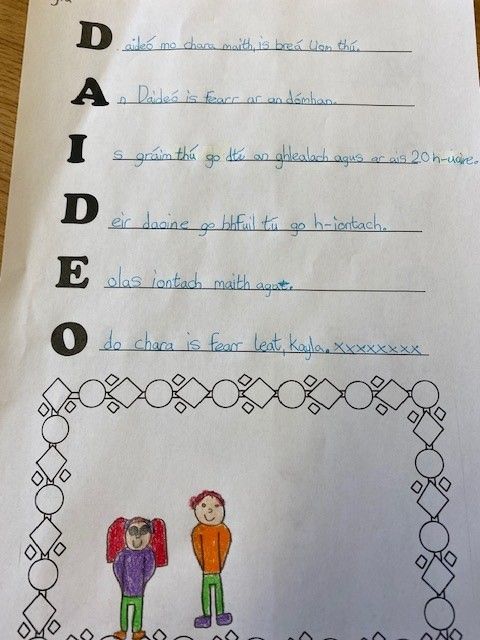 Daideó mo chara maith, is breá liom thú.
An Daideó is fearr ar an dómhan.
Is gráim thú go dtí an ghlealach agus ar ais 20 h-uaire.
Deir daoine go bhfuil tú go h-iontach.
Eolas iontach maith agat.
Odo chara is fearr leat, Kayla. xxxxxxxx